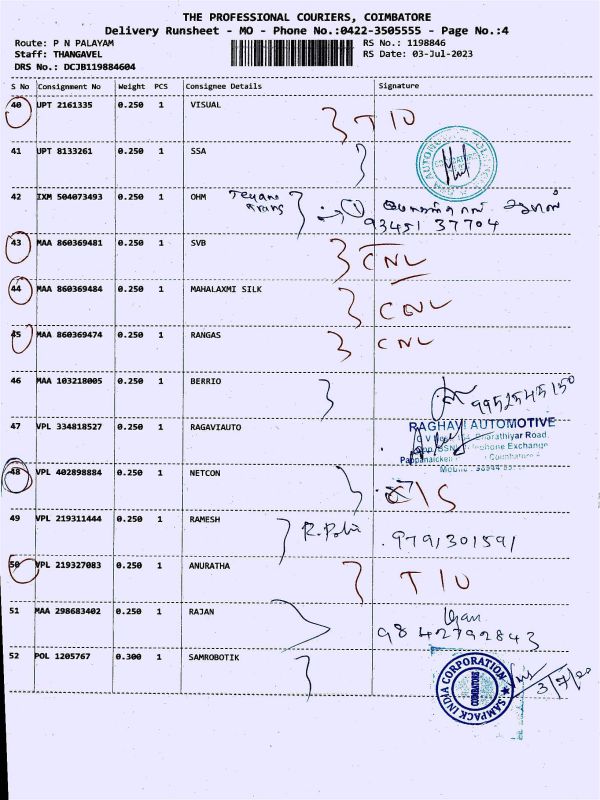 THE PROFESSIONAL COURIERS, COIMBATORE
Delivery Runsheet - MO - Phone No.:0422-3505555 - Page No.:4
Route: P N PALAYAM RS No.: 1198846
Staff: THANGAVEL RS Date: 03-Jul-2023
DRS No.: DCJB119884604
S No Consignment No Weight PCS Consignee Details Signature
40 UPT 2161335 0.250 1 VISUAL
41 UPT 8133261 0.250 1 SSA
42 IXM 504073493 0.250 1 OHM
93451 37704
43 MAA 860369481 0.250 1 SVB CNL
44 MAA 860369484 0.250 1 MAHALAXMI SILK CNL
45 MAA 860369474 0.250 1 RANGAS CNL
46 MAA 103218005 0.250 1 BERRIO
47 VPL 334818527 0.250 1 RAGAVIAUTO
RAGHAVI AUTOMOTIVE
Bharathiyar Road.
Exchange
48 VPL 402898884 0.250 1 NETCON
49 VPL 219311444 0.250 1 RAMESH 9791301591
50 VPL 219327083 0.250 1 ANURATHA
51 MAA 298683402 0.250 1 RAJAN
9842792843
52 POL 1205767 0.300 1 SAMROBOTIK
SAMPACK INDIA CORPORATION
COIMBATORE